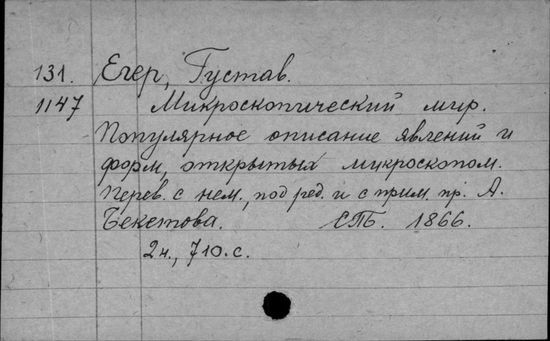 131. Егер, Густав.
1147 Микроскопический мир.
Популярное описание явлений и
форм, открытых микроскопом.
Перев. с нем., под ред. и с прим. пр. А.
Бекетова. СПБ. 1866.
2 ч., 710. с.